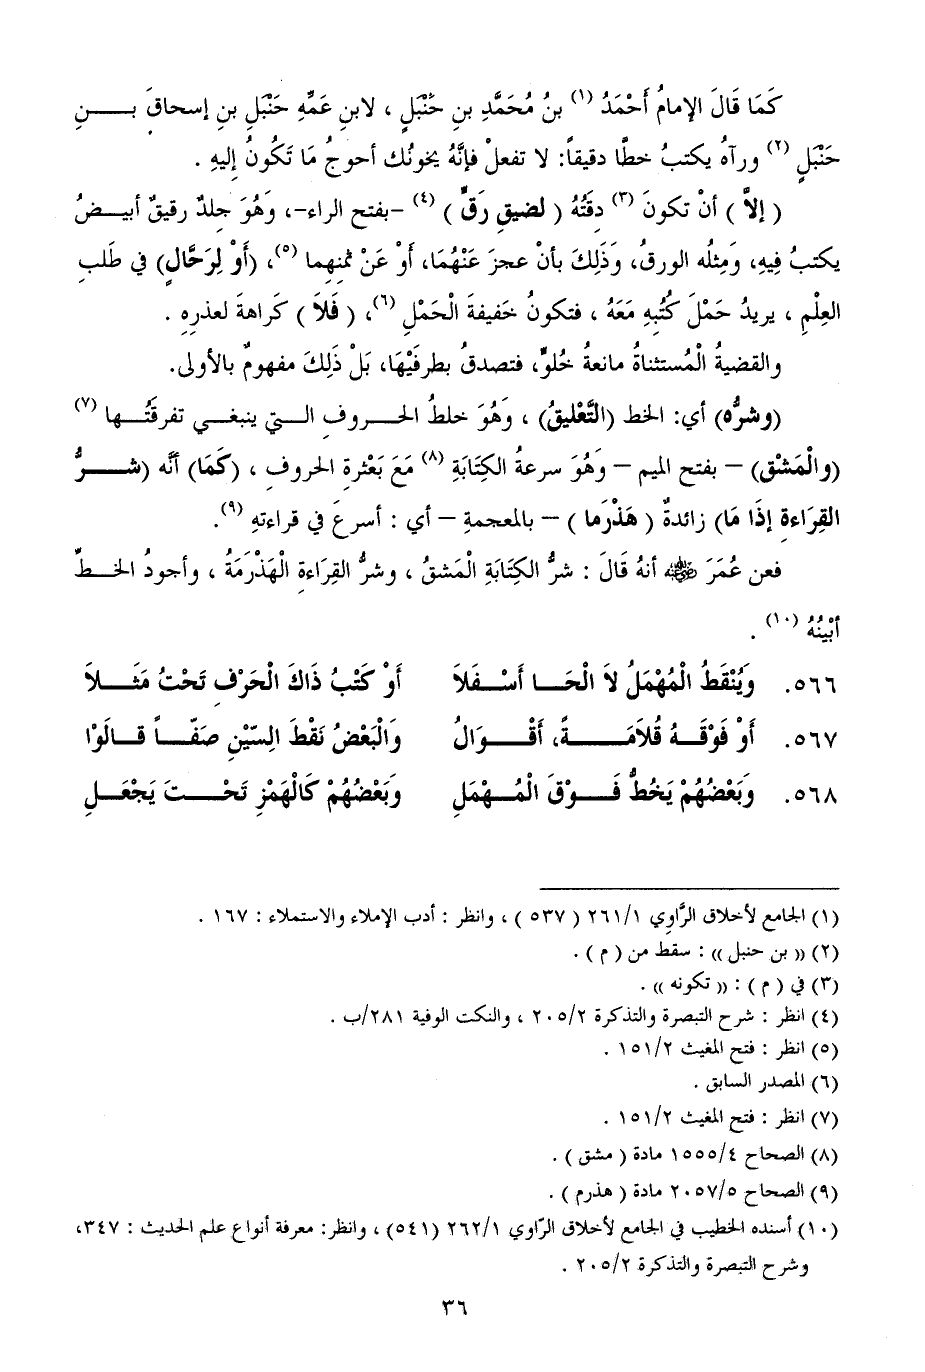 كَمَا قَالَ الإمامُ أَحْمَدُ (١) بنُ مُحَمَّدِ بنِ حَنْبَلٍ ، لابنِ عَمِّهِ حَنْبَلِ بنِ إسحاقَ بـــنِ
حَنْبَلٍ (٢) ورآهُ يكتبُ خطًّا دقيقاً: لا تفعلْ فإنَّهُ يخونُك أحوجُ مَا تَكُونُ إليهِ .
( إلاَّ ) أنْ تكونَ (٣) دِقَّتُهُ ( لضيقِ رَقٍّ ) (٤) -بفتح الراء-، وَهُوَ جلدٌ رقيقٌ أبيـضُ
يكتبُ فِيهِ، وَمِثلُه الورقُ، وَذَلِكَ بأنْ عجزَ عَنْهُمَا، أَوْ عَنْ ثمنِهِما (٥)، (أَوْ لِرَحَّالٍ) في طلبِ
العِلْمِ ، يريدُ حَمْلَ كُتُبِهِ مَعَهُ ، فتكونُ خَفيفةَ الْحَمْلِ (٦)، ( فَلاَ ) كَرَاهةَ لعذرِهِ .
والقضيةُ الْمُستثناةُ مانعةُ خُلوٍّ، فتصدقُ بطرفَيْهَا، بَلْ ذَلِكَ مفهومٌ بالأولى.
(وشرُّه) أي: الخط (التَّعْليقُ) ، وَهُوَ خلطُ الحـــروفِ الـــتي ينبغـــي تفرقتُـــها (٧)
(والْمَشْق) – بفتح الميم – وَهُوَ سرعةُ الكِتَابَةِ (٨) مَعَ بَعْثرةِ الحروفِ ، (كَمَا) أنَّه (شـــرُّ
القِرَاءةِ إذَا مَا) زائدةٌ ( هَذْرَما ) – بالمعجمةِ – أي : أسرعَ في قراءتهِ (٩).
فعن عُمَرَ ﷺ أنهُ قَالَ : شرُّ الكِتَابَةِ الْمَشقُ ، وشرُّ القِرَاءةِ الْهَذْرَمَةُ ، وأجودُ الخـــطِّ
أبْيَنُهُ (١٠) .
٥٦٦. وَيُنْقَطُ الْمُهْمَلُ لاَ الْحَـــا أَسْـفَلاَ أَوْ كَتْبُ ذَاكَ الْحَرْفِ تَحْتُ مَثَـــلاَ
٥٦٧. أَوْ فَوْقَـــهُ قُلاَمَـــــةً، أَقْـــوَالُ وَالْبَعْضُ نَقْطَ السِّيْنِ صَفّـــاً قَـالُوْا
٥٦٨. وَبَعْضُهُمْ يَخُطُّ فَـــوْقَ الْمُـهْمَلِ وَبَعْضُهُمْ كَالْهَمْزِ تَحْـــتَ يَجْعَـــلِ
(١) الجامع لأخلاق الرَّاوِي ٢٦١/١ ( ٥٣٧ ) ، وانظر : أدب الإملاء والاستملاء : ١٦٧ .
(٢) (( بن حنبل )) : سقط من ( م ) .
(٣) في ( م ) : (( تكونه )) .
(٤) انظر : شرح التبصرة والتذكرة ٢٠٥/٢ ، والنكت الوفية ٢٨١/ب .
(٥) انظر : فتح المغيث ١٥١/٢ .
(٦) المصدر السابق .
(٧) انظر : فتح المغيث ١٥١/٢ .
(٨) الصحاح ١٥٥٥/٤ مادة ( مشق ) .
(٩) الصحاح ٢٠٥٧/٥ مادة ( هذرم ) .
(١٠) أسنده الخطيب في الجامع لأخلاق الرّاوي ٢٦٢/١ (٥٤١) ، وانظر: معرفة أنواع علم الحديث : ٣٤٧،
وشرح التبصرة والتذكرة ٢٠٥/٢ .
٣٦